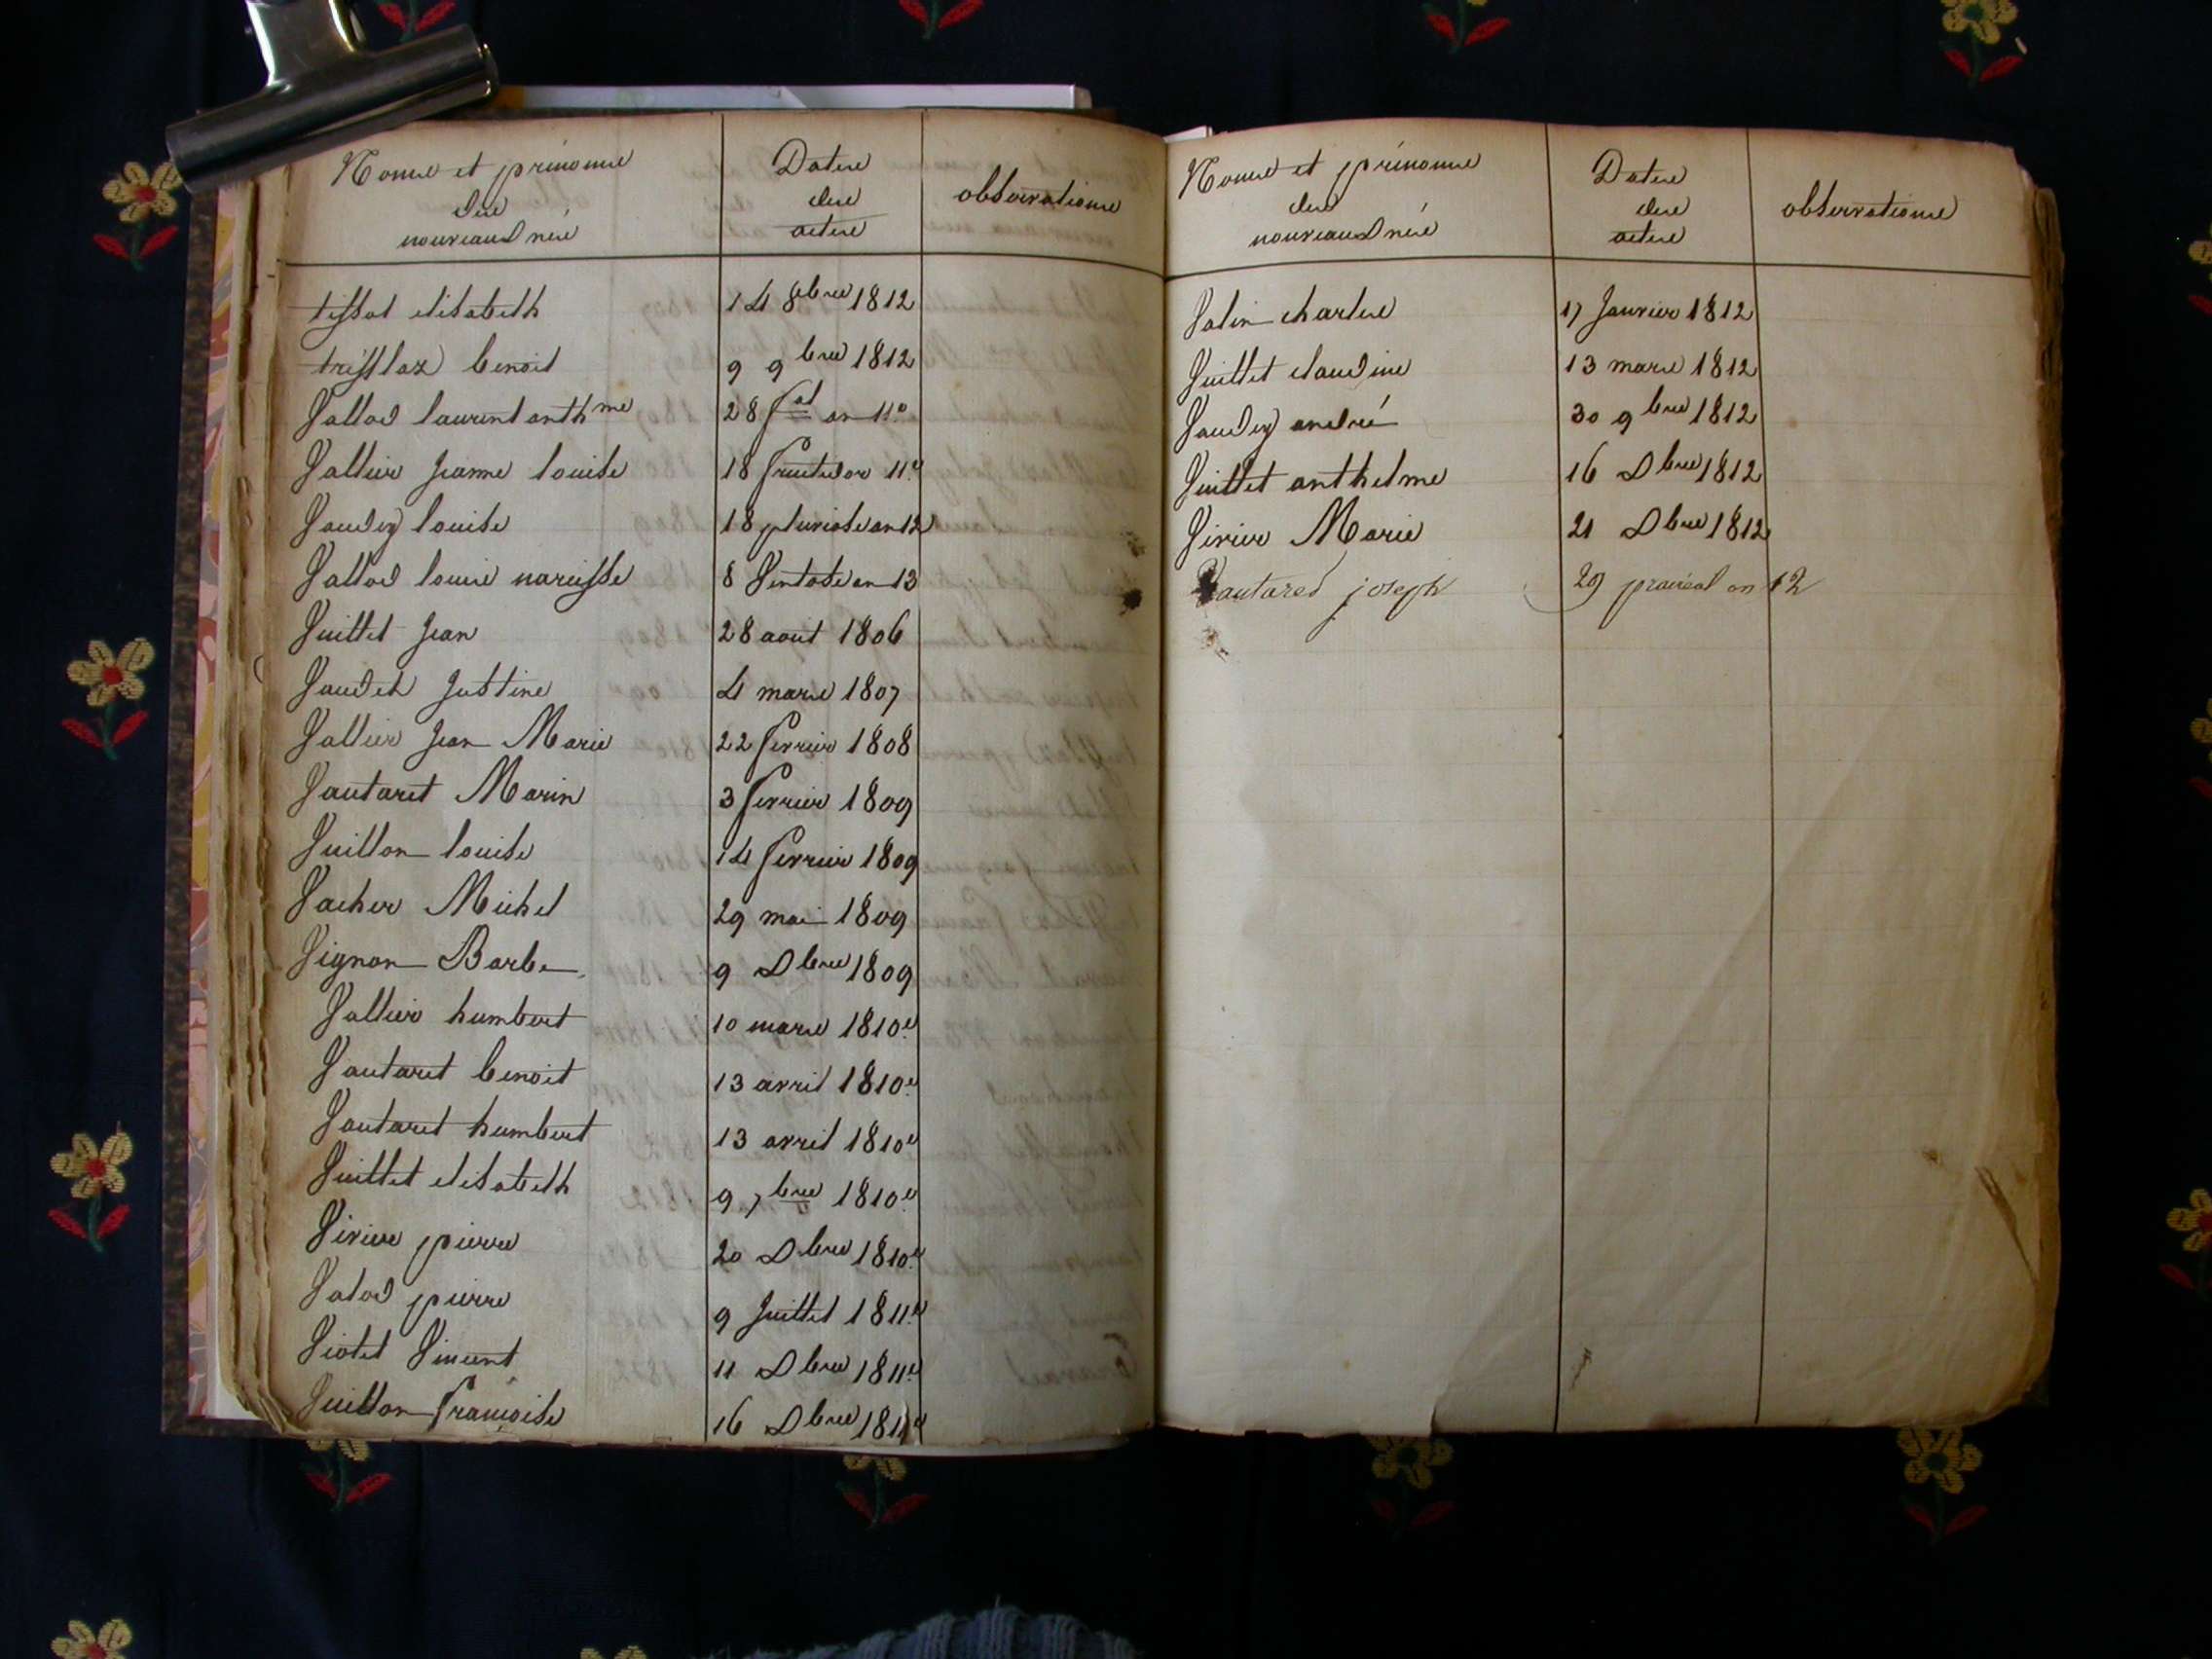 Noms et prénoms des nouveaux nés
Dates des actes
observations
tissot elisabeth 14 8bre 1812
trifflaz benoit 9 9bre 1812
Vallod laurent anthme 28 fal an 11e
Vallier Jeanne louise 18 fructidor 11e
Vaudey louise 18 pluviose an 12
Vallod louis narcisse 8 Ventose an 13
Vuillet Jean 28 aout 1806
Vaudeh Justine 4 mars 1807
Vallier Jean Marie 22 fevrier 1808
Vautaret Marin 3 fevrier 1809
Vuillon louise 14 fevrier 1809
Vacher Michel 29 mai 1809
Vignon Barbe 9 Dbre 1809
Vallier humbert 10 mars 1810e
Vautaret benoit 13 avril 1810e
Vautaret humbert 13 avril 1810e
Vuillet elisabeth 9 7bre 1810e
Virieu pierre 20 Dbre 1810e
Valod pierre 9 Juillet 1811e
Viotet Vincent 11 Dbre 1811e
Vuillon françoise 16 Dbre 1811e
Noms et prénoms des nouveaux nés
Dates des actes
observations
Valin charles 17 Janvier 1812
Vuillet claudine 13 mars 1812
Vaudey andré 30 9bre 1812
Vuillet anthelme 16 Dbre 1812
Virier Marie 21 Dbre 1812
Vautared joseph 29 prairéal an 12